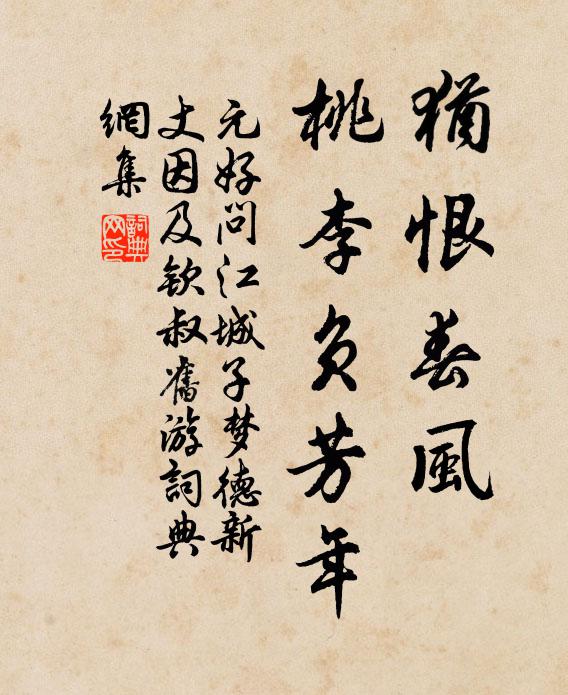 猶恨春風
桃李負芳年
元好問江城子梦德新
丈因及欽叔舊游詞典
網集
詞典
网印